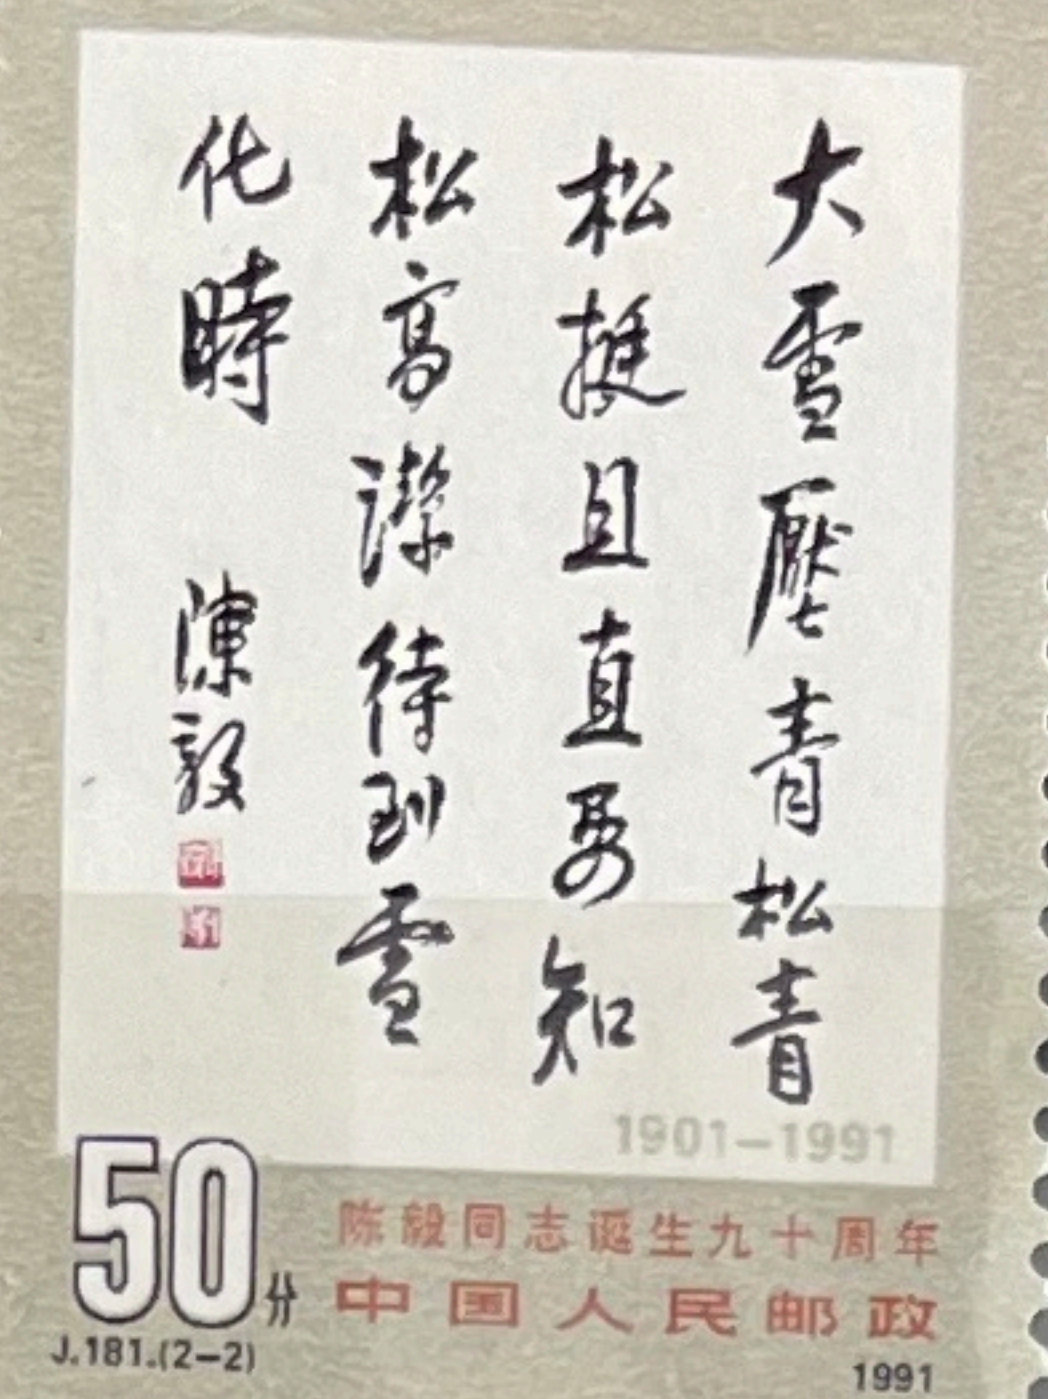 大雪壓青松青
松挺且直要知
松高潔待到雪
化時
陳毅
1901-1991
50分
陈毅同志诞生九十周年
中国人民邮政
J.181.(2-2)
1991